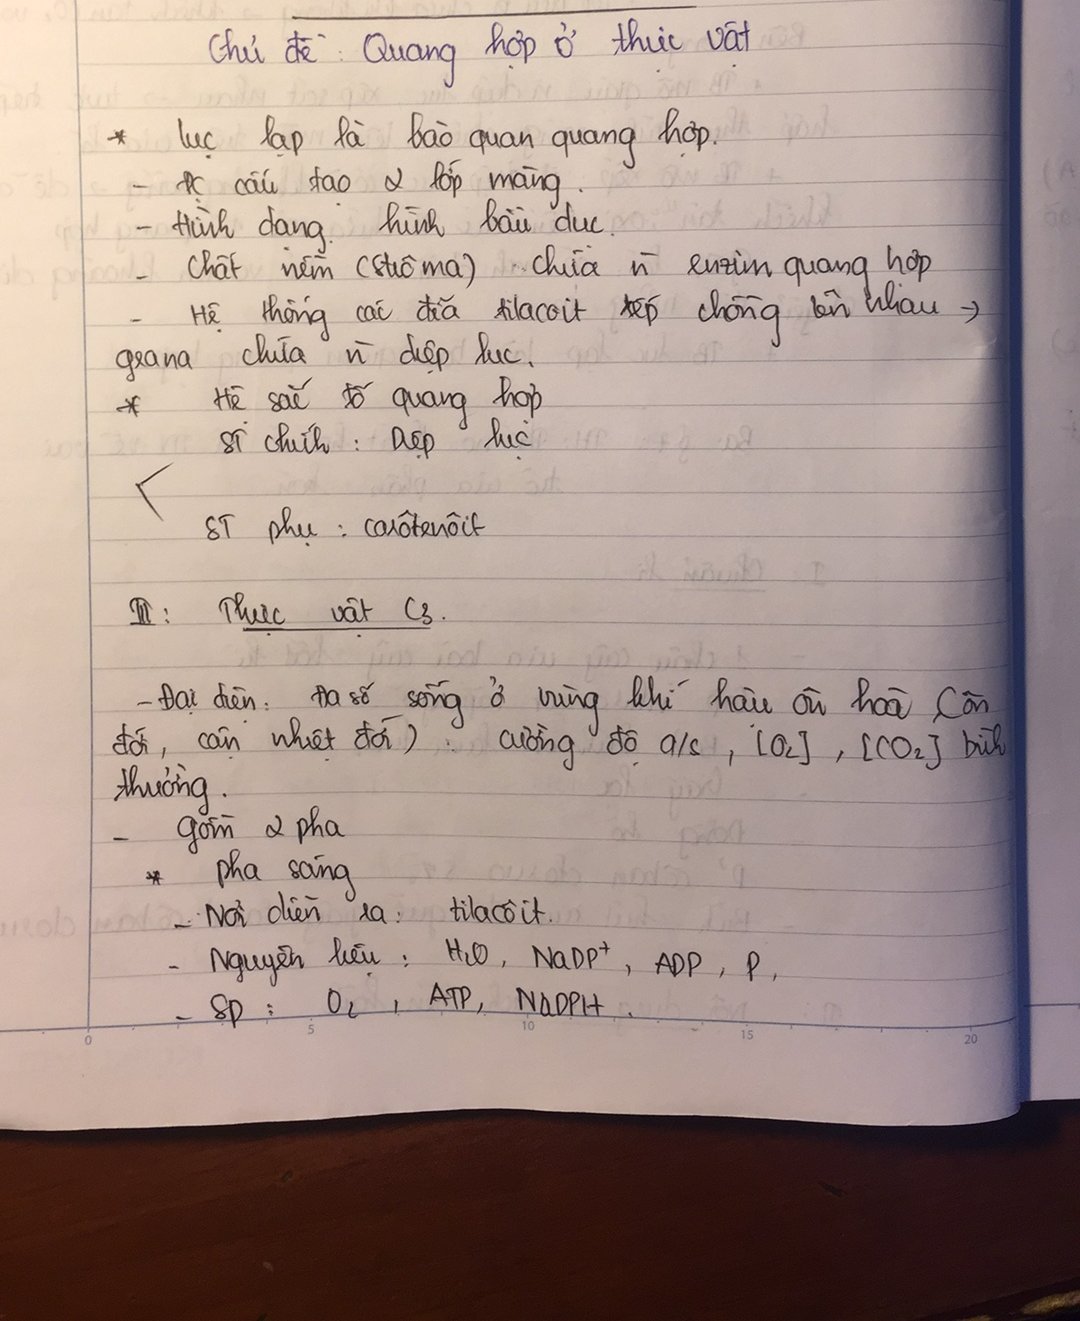 Chủ đề: Quang hợp ở thực vật
* lục lạp là bào quan quang hợp.
- đc cấu tạo 2 lớp màng.
- Hình dạng: hình bầu dục.
- Chất nềm (Strôma) chứa n̄ enzim quang hợp
- Hệ thống các đĩa tilacoit xếp chồng lên nhau →
grana chứa n̄ diệp lục.
* Hệ sắc tố quang hợp
ST chính: Diệp lục
ST phụ: carôtenôit
II: Thực vật C3.
- Đại diện: Đa số sống ở vùng khí hậu ôn hoà (ôn
đới, cận nhiệt đới): cường độ a/s, [O2], [CO2] bình
thường.
- gồm 2 pha
* pha sáng
- Nơi diễn ra: tilacôit.
- Nguyên liệu: H2O, NaDP+, ADP, P,
- SP: O2, ATP, NADPH.
0 5 10 15 20